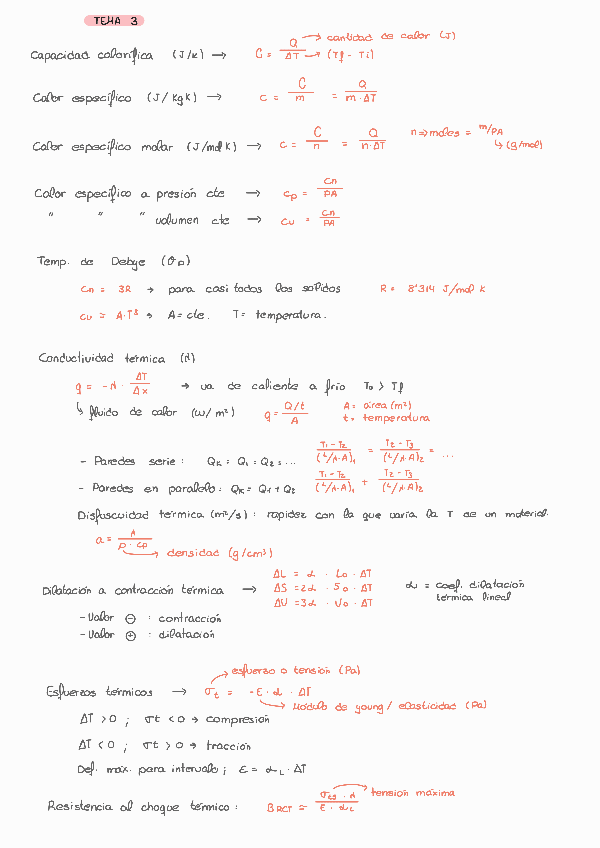 TEMA 3
Capacidad calorífica (J/K) → C = Q / ΔT → cantidad de calor (J) → (Tf - Ti)
Calor específico (J/KgK) → c = C / m = Q / m·ΔT
Calor específico molar (J/mol K) → c = C / n = Q / n·ΔT n => moles = m/PA ↳ (g/mol)
Calor específico a presión cte → cp = cn / PA
" " " volumen cte → cv = cn / PA
Temp. de Debye (θD)
cn = 3R → para casi todos los solidos R = 8'314 J/mol K
cv = A·T³ → A = cte. T = temperatura.
Conductividad térmica (λ)
q = -λ · ΔT / Δx → va de caliente a frío To > Tf
↳ fluido de calor (w/m²) q = Q/t / A A = área (m²)
t = temperatura
- Paredes serie: QK = Q1 = Q2 = ... T1 - T2 / (L/λ·A)1 = T2 - T3 / (L/λ·A)2 = ...
- Paredes en paralelo: QK = Q1 + Q2 T1 - T2 / (L/λ·A)1 + T2 - T3 / (L/λ·A)2
Disfuscuidad térmica (m²/s): rapidez con la que varía la T de un material.
a = λ / ρ · cp → densidad (g/cm³)
Dilatación a contracción térmica → ΔL = α · Lo · ΔT
ΔS = 2α · So · ΔT
ΔV = 3α · Vo · ΔT
α = coef. dilatación
térmica lineal
- Valor ⊖ : contracción
- Valor ⊕ : dilatación
esfuerzo o tensión (Pa)
Esfuerzos térmicos → σt = -E · α · ΔT
Módulo de young / elasticidad (Pa)
ΔT > 0 ; σt < 0 → compresión
ΔT < 0 ; σt > 0 → tracción
Def. máx. para intervalo ; ε = αL · ΔT
Resistencia al choque térmico : BRCT = · λ / E · αL tensión máxima